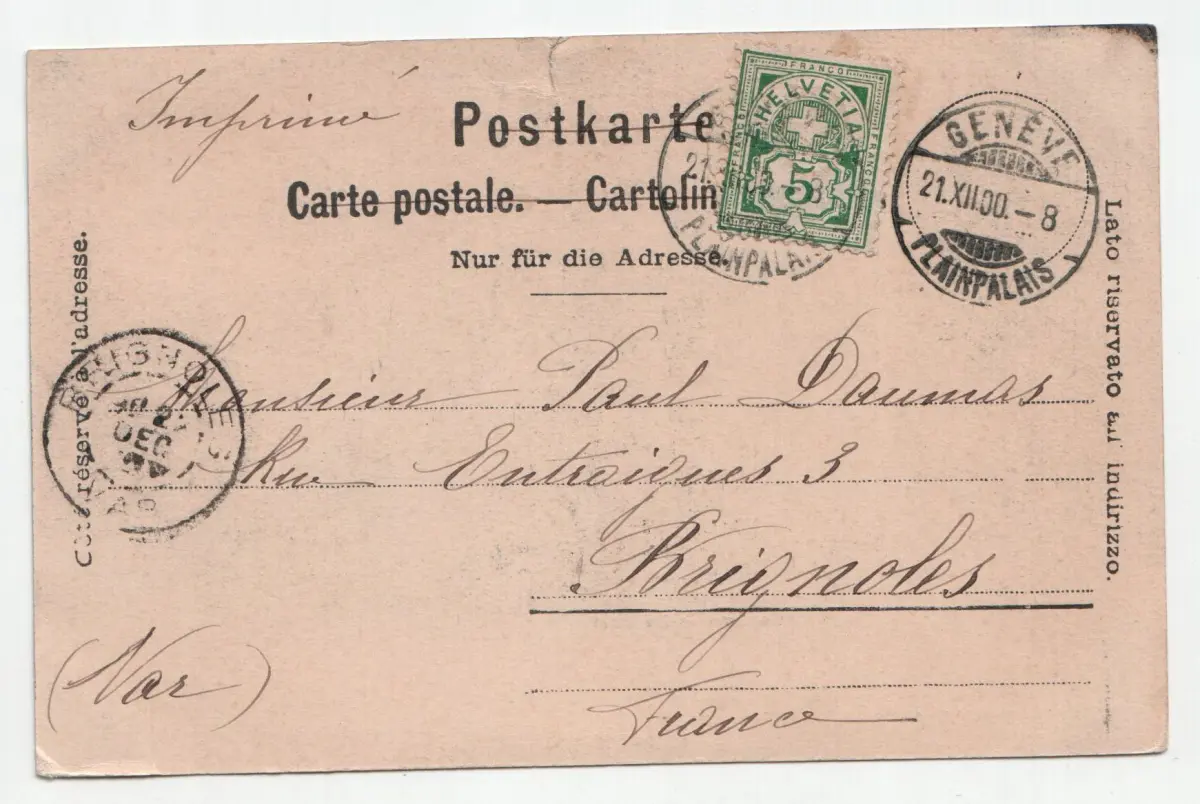 Imprimé
Postkarte
Carte postale. — Cartolin
Nur für die Adresse.
FRANCO
HELVETIA
FRANCO
FRANCO
5
21.XII.00.-8
PLAINPALAIS
GENÈVE
21.XII.00.-8
PLAINPALAIS
Côté réservé à l'adresse.
Lato riservato all' indirizzo.
BRIGNOLES
DEC
Monsieur Paul Daumas
Rue Entraigues 3
Brignoles
(Var)
France